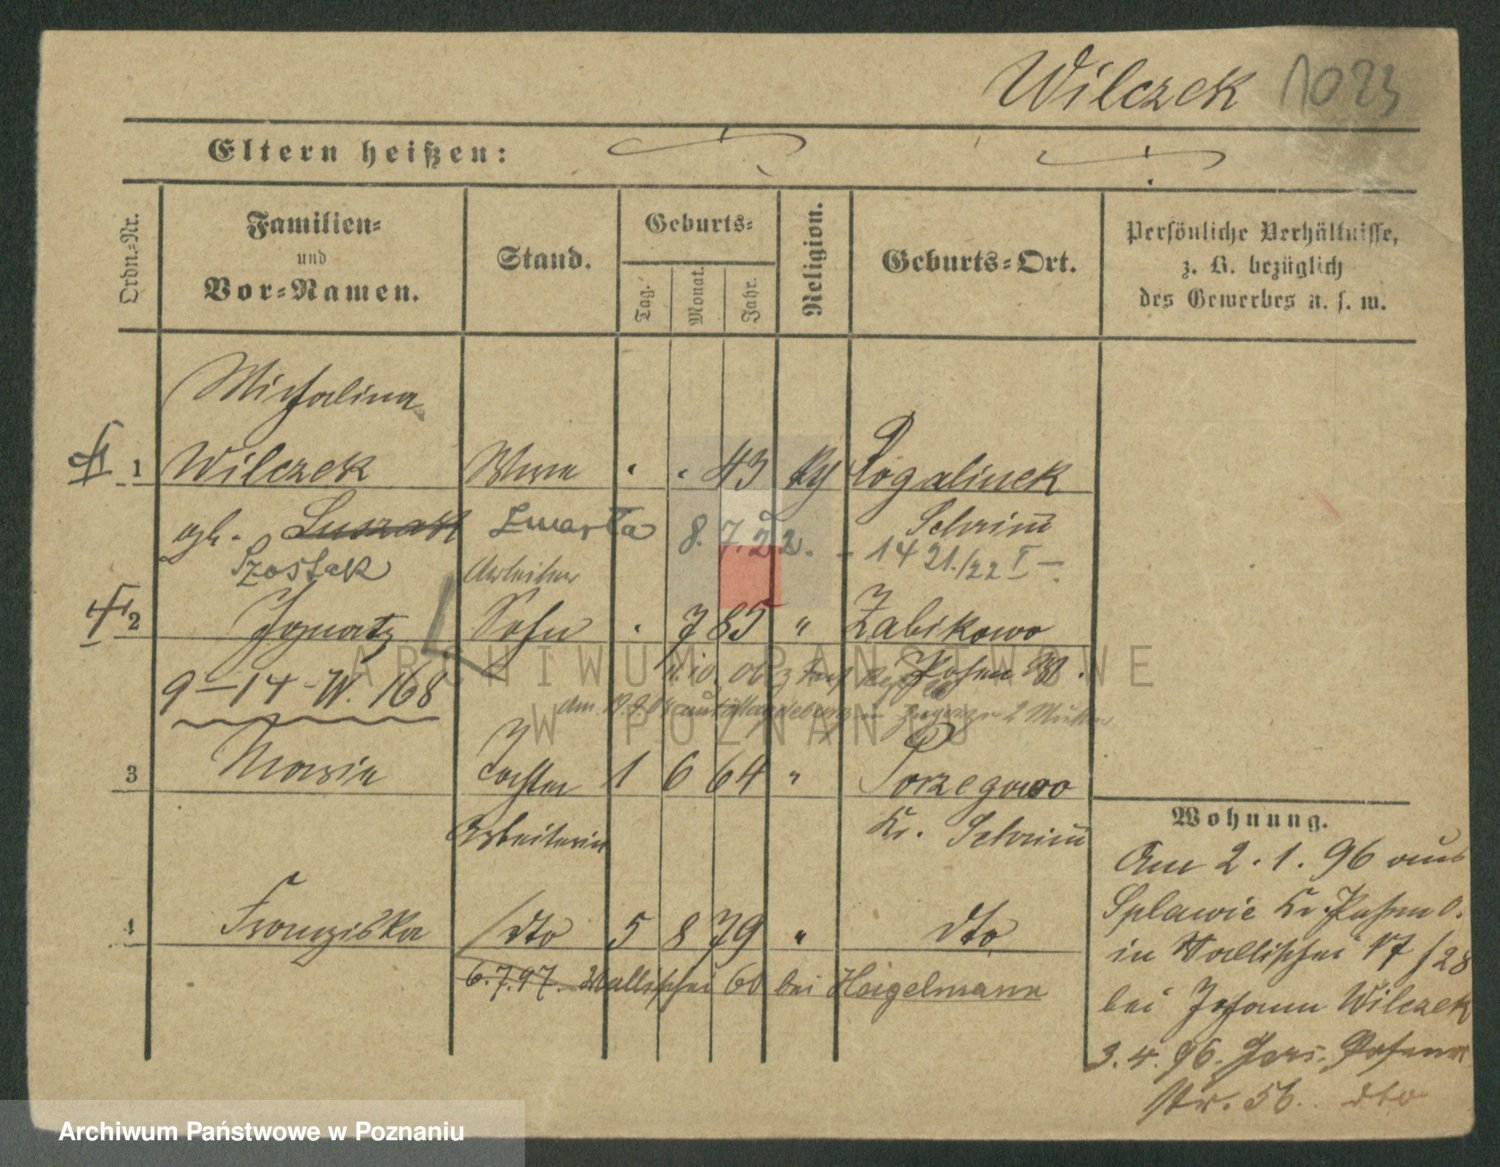 Wilczek 1023
Eltern heißen:
Ordn.-Nr.
Familien-
und
Vor-Namen.
Stand.
Geburts-
Tag.
Monat.
Jahr.
Religion.
Geburts-Ort.
Persönliche Verhältnisse,
z. B. bezüglich
des Gewerbes u. s. w.
Michalina
1 Wilczek Wwe . . 43 Rogalinek
Schrim
Szostak Zmarła 8.7.22. - 14 21./22 I -
Arbeiter
2 Ignatz Sohn . 7 85 " Zabikowo
Posen W.
9-14-W. 168
3 Maria Tochter 1 6 64 " Porzegowo
Arbeiterin Kr. Schrim
4 Franziska dto 5 8 79 " dto
6.7.97. Wallischei 60 bei Heigelmann
Wohnung.
Am 2.1.96 aus
Splawie Kr. Posen O.
in Wallischei 17/28
bei Johann Wilczek
3.4.96. Posener
Str. 56. dto
ARCHIWUM PAŃSTWOWE
W POZNANIU
Archiwum Państwowe w Poznaniu